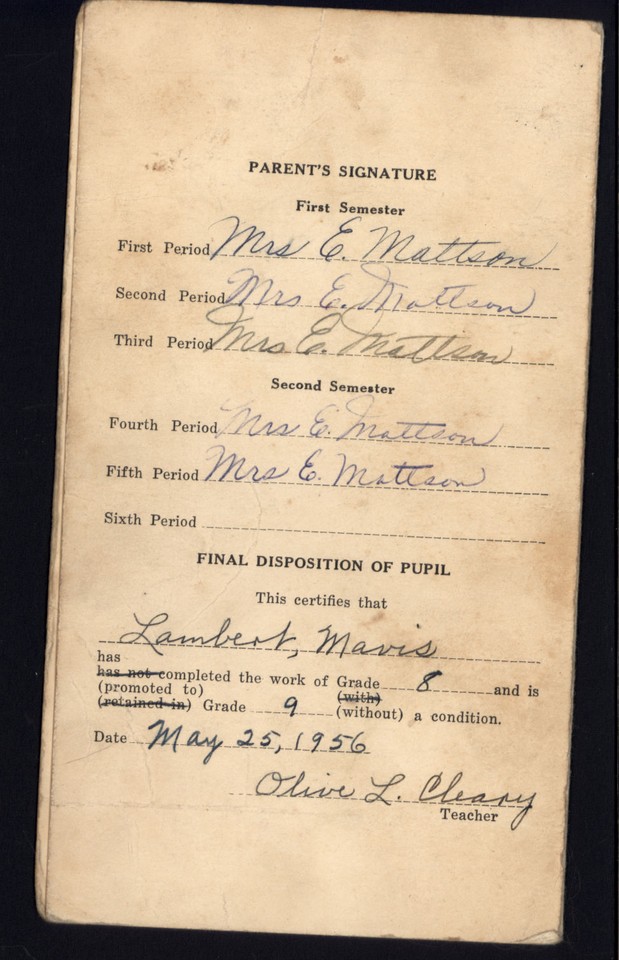 PARENT'S SIGNATURE
First Semester
First Period Mrs E. Mattson
Second Period Mrs E. Mattson
Third Period Mrs E. Mattson
Second Semester
Fourth Period Mrs E. Mattson
Fifth Period Mrs E. Mattson
Sixth Period
FINAL DISPOSITION OF PUPIL
This certifies that
Lambert, Mavis
has
has not completed the work of Grade 8 and is
(promoted to) (with)
(retained in) Grade 9 (without) a condition.
Date May 25, 1956
Olive L. Cleary
Teacher